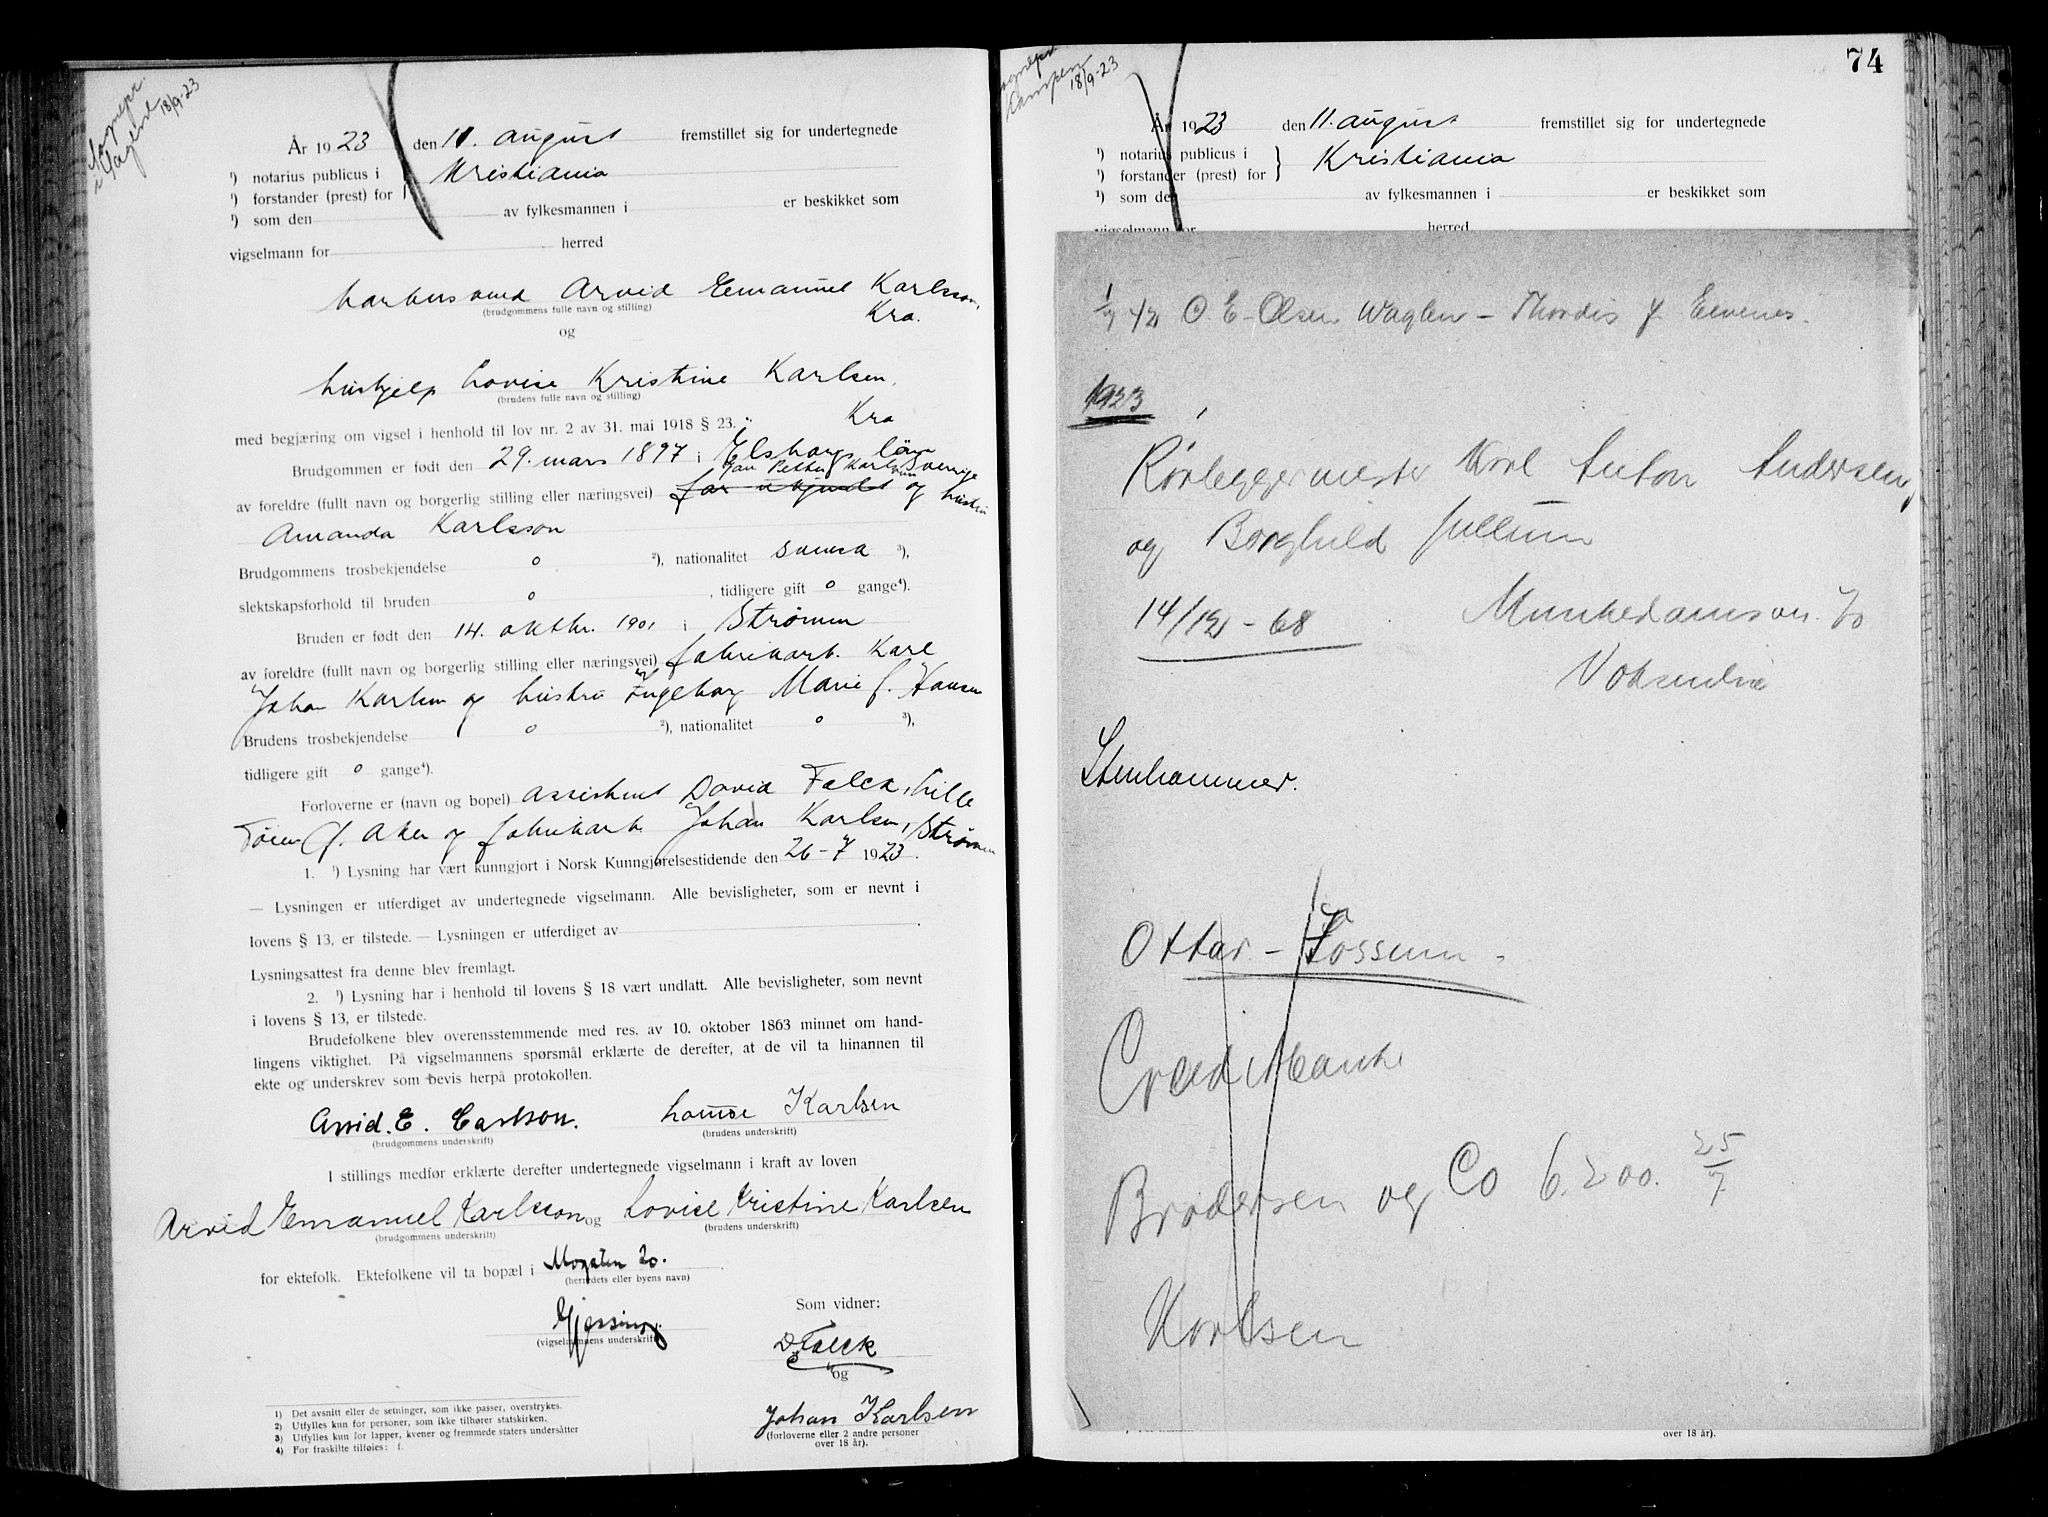 Sognepr.
i Vaglend 18/9-23
År 1923 den 11. august fremstillet sig for undertegnede
¹) notarius publicus i } Kristiania
¹) forstander (prest) for
¹) som den av fylkesmannen i er beskikket som
vigselmann for herred
Arvid Emanuel Karlsson,
(brudgommens fulle navn og stilling)
Kra.
og
hushjelp Lovise Kristine Karlsen,
(brudens fulle navn og stilling)
Kra
med begjæring om vigsel i henhold til lov nr. 2 av 31. mai 1918 § 23.
Brudgommen er født den 29. mars 1897 i Elsborgs län
Sverige
av foreldre (fullt navn og borgerlig stilling eller næringsvei) far ukjendt og hustru
Amanda Karlsson
Brudgommens trosbekjendelse o ²), nationalitet svensk ³),
slektskapsforhold til bruden o , tidligere gift o gange⁴).
Bruden er født den 14. oktbr. 1901 i Strømmen
av foreldre (fullt navn og borgerlig stilling eller næringsvei) fabrikarb. Karl
Johan Karlsen og hustru Ingeborg Marie f. Hansen
Brudens trosbekjendelse o ²), nationalitet o ³),
tidligere gift o gange⁴).
Forloverne er (navn og bopel) assistent David Falck, Lille
Tøien f. Aker og fabrikarb. Johan Karlsen, Strømmen
1. ¹) Lysning har vært kunngjort i Norsk Kunngjørelsestidende den 26-7 1923.
— Lysningen er utferdiget av undertegnede vigselmann. Alle bevisligheter, som er nevnt i
lovens § 13, er tilstede. — Lysningen er utferdiget av
Lysningsattest fra denne blev fremlagt.
2. ¹) Lysning har i henhold til lovens § 18 vært undlatt. Alle bevisligheter, som nevnt
i lovens § 13, er tilstede.
Brudefolkene blev overensstemmende med res. av 10. oktober 1863 minnet om hand-
lingens viktighet. På vigselmannens spørsmål erklærte de derefter, at de vil ta hinannen til
ekte og underskrev som bevis herpå protokollen.
Arvid. E. Carlson. Lovise Karlsen
(brudgommens underskrift) (brudens underskrift)
I stillings medfør erklærte derefter undertegnede vigselmann i kraft av loven
Arvid Emanuel Karlsson og Lovise Kristine Karlsen
(brudgommens underskrift) (brudens underskrift)
for ektefolk. Ektefolkene vil ta bopæl i Mogaten 20.
(herredets eller byens navn)
Gjessing.
(vigselmannens underskrift)
Som vidner:
D Falck
og
Johan Karlsen
(forloverne eller 2 andre personer
over 18 år).
1) Det avsnitt eller de setninger, som ikke passer, overstrykes.
2) Utfylles kun for personer, som ikke tilhører statskirken.
3) Utfylles kun for lapper, kvener og fremmede staters undersåtter
4) For fraskilte tilføies: f.
74
Kampen 18/9-23
År 1923 den 11. august fremstillet sig for undertegnede
¹) notarius publicus i } Kristiania
¹) forstander (prest) for
¹) som den av fylkesmannen i er beskikket som
vigselmann for herred
1/7 42 O. E. Olsen Waglen - Thordis f. Evenes.
1923
Rørleggermester Karl Anton Andersen,
og Borghild Jullum
14/12 - 68 Munkedamsvn. 70
Stenhammer.
Ottar - Fossum.
Brodersen og Co 6.200. 25/7
Karlsen
over 18 år).